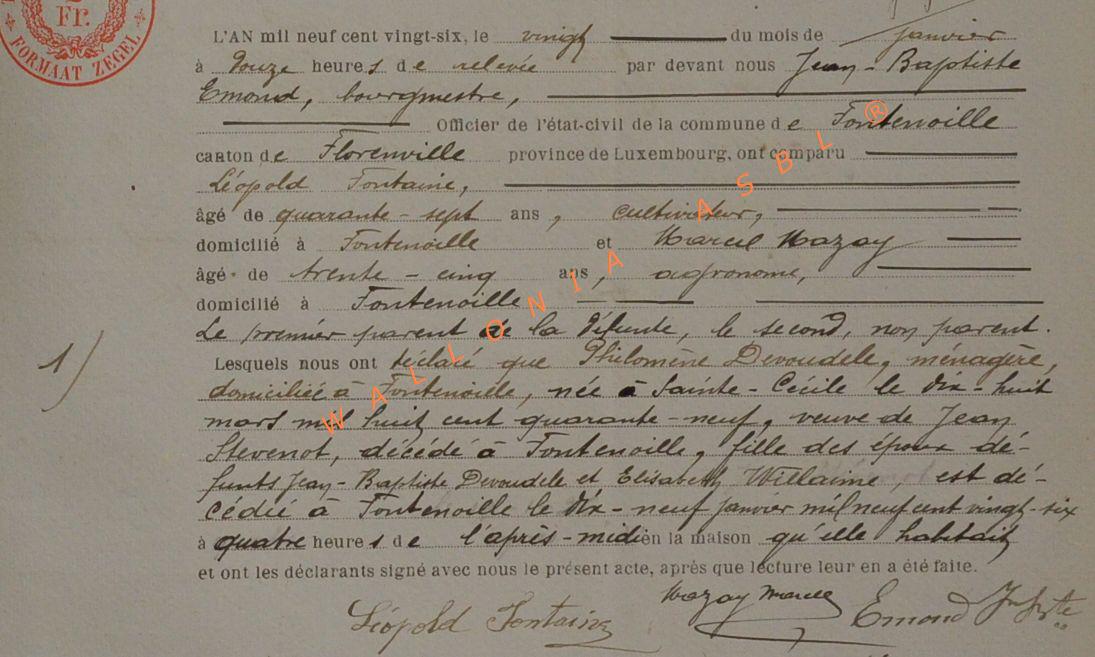 Fr.
FORMAAT ZEGEL
L'AN mil neuf cent vingt-six, le vingt du mois de janvier
à douze heures de relevée par devant nous Jean-Baptiste
Emond, bourgmestre,
Officier de l'état-civil de la commune de Fontenoille
canton de Florenville province de Luxembourg, ont comparu
Léopold Fontaine,
âgé de quarante-sept ans, cultivateur,
domicilié à Fontenoille et Marcel Mazay
âgé de trente-cinq ans, agronome,
domicilié à Fontenoille
Le premier parent de la défunte, le second, non parent.
1)
Lesquels nous ont déclaré que Philomène Devoudele, ménagère,
domiciliée à Fontenoille, née à Sainte-Cécile le dix-huit
mars mil huit cent quarante-neuf, veuve de Jean
Stevenot, décédé à Fontenoille, fille des époux dé-
funts Jean-Baptiste Devoudele et Elisabeth Willaime, est dé-
cédée à Fontenoille le dix-neuf janvier mil neuf cent vingt-six
à quatre heures de l'après-midi en la maison qu'elle habitait
et ont les déclarants signé avec nous le présent acte, après que lecture leur en a été faite.
Léopold Fontaine Mazay Marcel Emond
WALLONIA ASBL ®